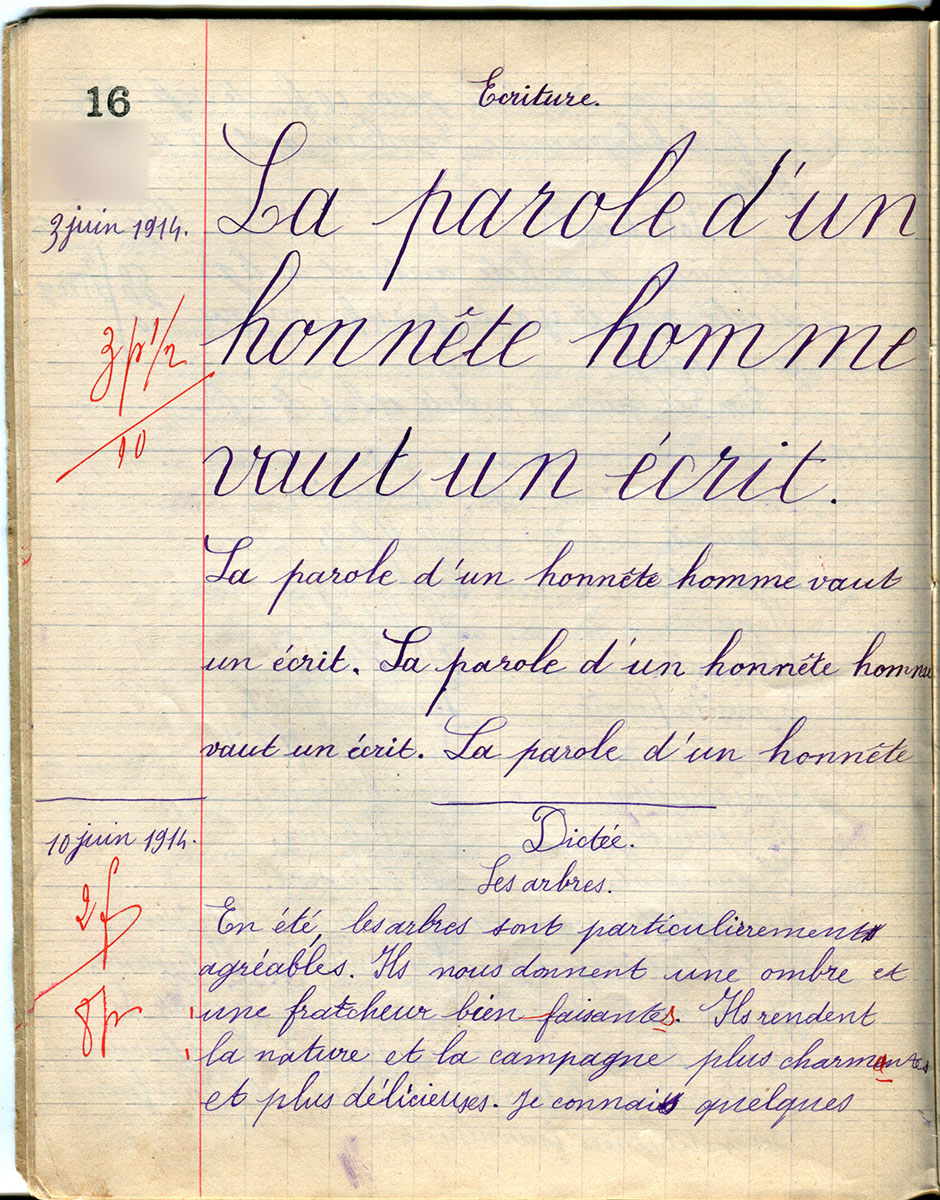 16
Ecriture.
3 juin 1914.
La parole d'un
honnête homme
3 p 1/2
10
vaut un écrit.
La parole d'un honnête homme vaut
un écrit. La parole d'un honnête homme
vaut un écrit. La parole d'un honnête
10 juin 1914.
Dictée.
Les arbres.
2 f
8 p
En été, les arbres sont particulièrement
agréables. Ils nous donnent une ombre et
une fraîcheur bien faisantes. Ils rendent
la nature et la campagne plus charmantes
et plus délicieuses. Je connais quelques